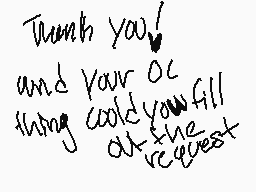 Thank you!
and your OC
thing could you fill
out the
request